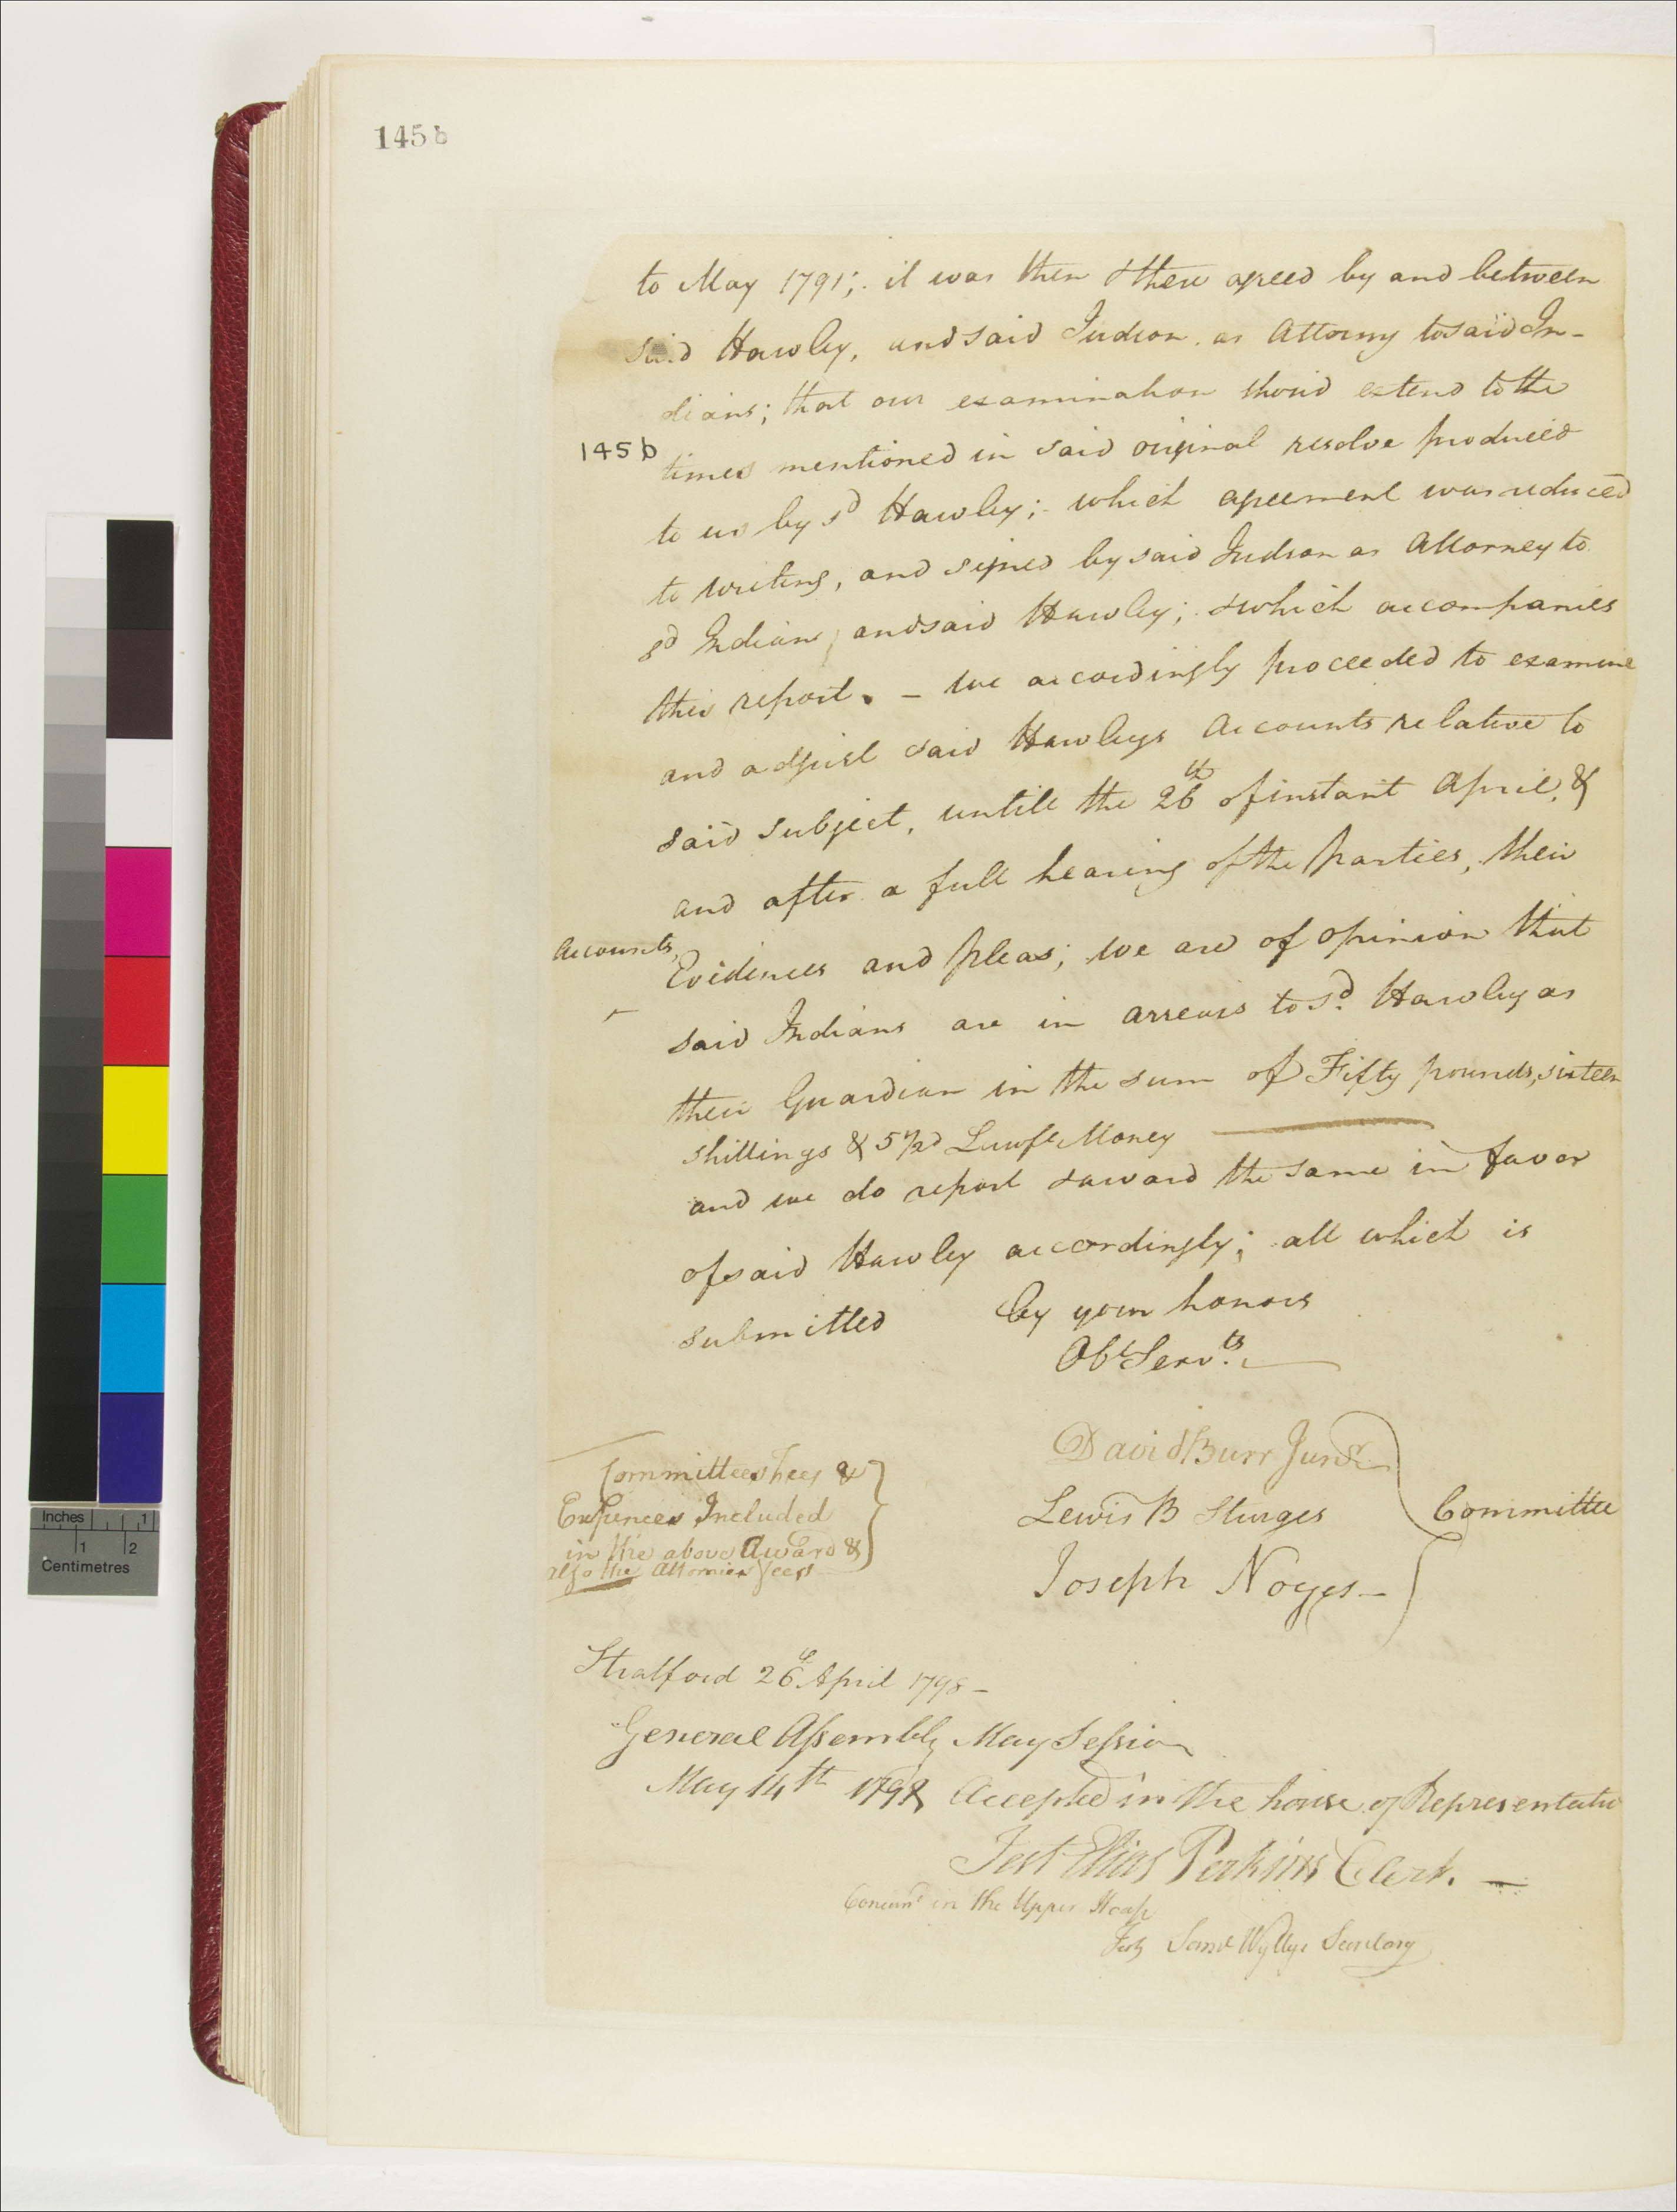 145 b
to May 1791; it was then & there agreed by and between
said Hawley, and said Judson as Attorny to said In-
dians; that our examination should extend to the
145 b
times mentioned in said original resolve produced
to us by sd Hawley; which agreement was reduced
to writing, and signed by said Judson as Attorney to
sd Indians, and said Hawley; & which accompanies
this report. – We accordingly proceeded to examine
and adjust said Hawleys Accounts relative to
said subject, untill the 26th of instant April, &
and after a full hearing of the parties, their
Accounts,
Evidences and pleas; we are of opinion that
said Indians are in arrears to sd. Hawley as
their Guardian in the sum of Fifty pounds, sixteen
shillings & 5 1/2d Lawfl Money
and we do report & award the same in favor
of said Hawley accordingly; all which is
submitted by your honors
Obt Servts.
David Burr Junr
Lewis B Sturges
Joseph Noyes –
Committee
Committees Fees &
Expences Included
in the above Award &
also the Attornies Fees
Stratford 26th April 1798 –
General Assembly May Session
May 14th 1798 Accepted in the house of Representativ
Test Elias Perkins Clerk. –
Concurrd in the Upper House
Test Saml Wyllys Secretary